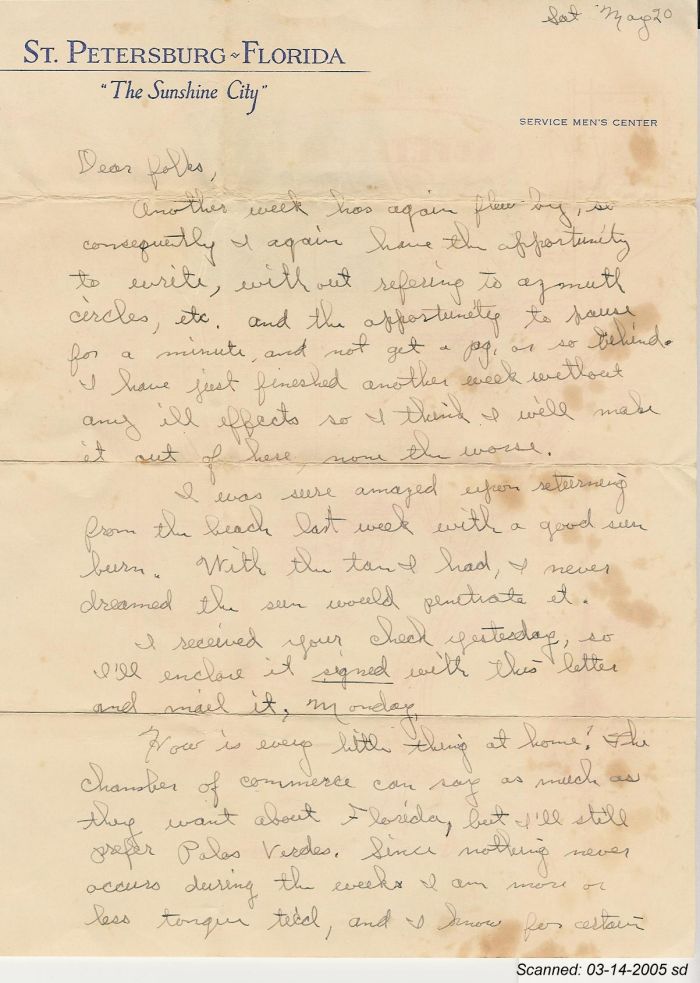 Sat May 20
ST. PETERSBURG ~ FLORIDA
"The Sunshine City"
SERVICE MEN'S CENTER
Dear folks,
Another week has again flew by, so
consequently I again have the opportunity
to write, without refering to azmuth
circles, etc. and the opportunity to pause
for a minute, and not get a pg. or so behind.
I have just fineshed another week without
any ill effects so I think I will make
it out of here, none the worse.
I was sure amazed upon returning
from the beach last week with a good sun
burn. With the tan I had, I never
dreamed the sun would penitrate it.
I received your check yesterday, so
I'll enclose it signed with this letter
and mail it, Monday.
How is every little thing at home? The
chamber of commerce can say as much as
they want about Florida, but I'll still
prefer Palos Verdes. Since nothing never
occurs during the weeks I am more or
less tongue tied, and I know for certain
Scanned: 03-14-2005 sd